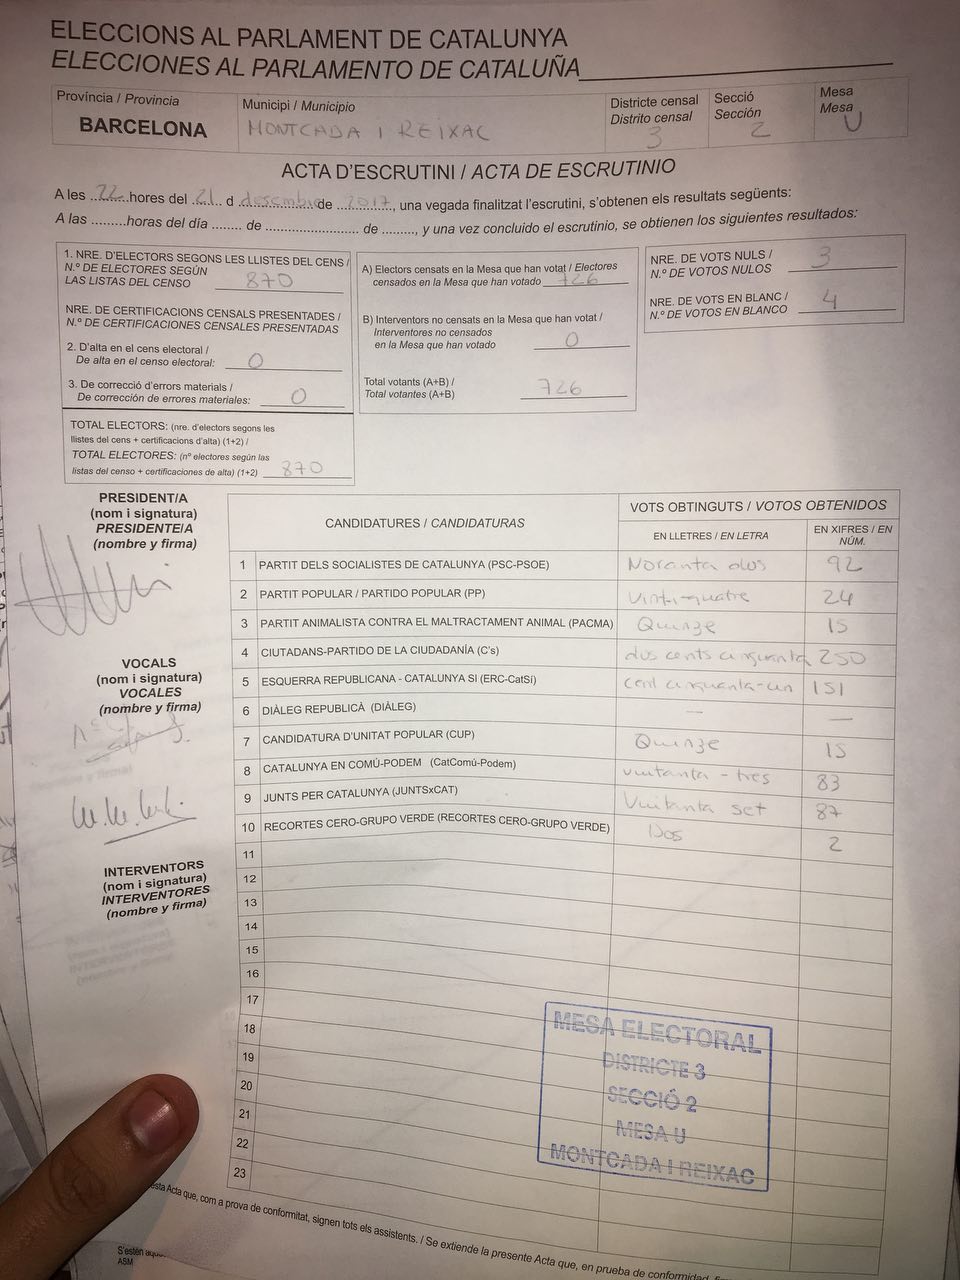 ELECCIONS AL PARLAMENT DE CATALUNYA
ELECCIONES AL PARLAMENTO DE CATALUÑA
Província / Provincia
BARCELONA
Municipi / Municipio
MONTCADA I REIXAC
Districte censal
Distrito censal
3
Secció
Sección
2
Mesa
Mesa
U
ACTA D'ESCRUTINI / ACTA DE ESCRUTINIO
A les ..22..hores del ..21.. d desembre de ..2017.., una vegada finalitzat l'escrutini, s'obtenen els resultats següents:
A las .........horas del día ........ de ........................... de ........., y una vez concluido el escrutinio, se obtienen los siguientes resultados:
1. NRE. D'ELECTORS SEGONS LES LLISTES DEL CENS /
N.º DE ELECTORES SEGÚN
LAS LISTAS DEL CENSO 870
NRE. DE CERTIFICACIONS CENSALS PRESENTADES /
N.º DE CERTIFICACIONES CENSALES PRESENTADAS
2. D'alta en el cens electoral /
De alta en el censo electoral: 0
3. De correcció d'errors materials /
De corrección de errores materiales: 0
TOTAL ELECTORS: (nre. d'electors segons les
llistes del cens + certificacions d'alta) (1+2) /
TOTAL ELECTORES: (nº electores según las
listas del censo + certificaciones de alta) (1+2) 870
A) Electors censats en la Mesa que han votat / Electores
censados en la Mesa que han votado 726
B) Interventors no censats en la Mesa que han votat /
Interventores no censados
en la Mesa que han votado 0
Total votants (A+B) /
Total votantes (A+B) 726
NRE. DE VOTS NULS /
N.º DE VOTOS NULOS 3
NRE. DE VOTS EN BLANC /
N.º DE VOTOS EN BLANCO 4
PRESIDENT/A
(nom i signatura)
PRESIDENTE/A
(nombre y firma)
VOCALS
(nom i signatura)
VOCALES
(nombre y firma)
INTERVENTORS
(nom i signatura)
INTERVENTORES
(nombre y firma)
CANDIDATURES / CANDIDATURAS
VOTS OBTINGUTS / VOTOS OBTENIDOS
EN LLETRES / EN LETRA
EN XIFRES / EN
NÚM.
1 PARTIT DELS SOCIALISTES DE CATALUNYA (PSC-PSOE) Noranta dos 92
2 PARTIT POPULAR / PARTIDO POPULAR (PP) Vint-i-quatre 24
3 PARTIT ANIMALISTA CONTRA EL MALTRACTAMENT ANIMAL (PACMA) Quinze 15
4 CIUTADANS-PARTIDO DE LA CIUDADANÍA (C's) dos cents cinquanta 250
5 ESQUERRA REPUBLICANA - CATALUNYA SI (ERC-CatSí) cent cinquanta-un 151
6 DIÀLEG REPUBLICÀ (DIÀLEG) — —
7 CANDIDATURA D'UNITAT POPULAR (CUP) Quinze 15
8 CATALUNYA EN COMÚ-PODEM (CatComú-Podem) vuitanta - tres 83
9 JUNTS PER CATALUNYA (JUNTSxCAT) Vuitanta set 87
10 RECORTES CERO-GRUPO VERDE (RECORTES CERO-GRUPO VERDE) Dos 2
11
12
13
14
15
16
17
18
19
20
21
22
23
MESA ELECTORAL
DISTRICTE 3
SECCIÓ 2
MESA U
MONTCADA I REIXAC
esta Acta que, com a prova de conformitat, signen tots els assistents. / Se extiende la presente Acta que, en prueba de conformidad,
S'estén
ASM